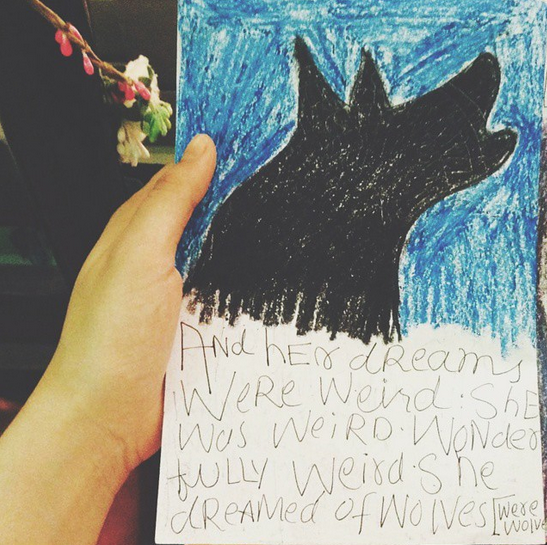 And hEr dREAMS
WERE WEird. ShE
WAS WEiRD. WONder
fULLY WEird. She
dREAMED Of WOlVES [WERE
WOlVE